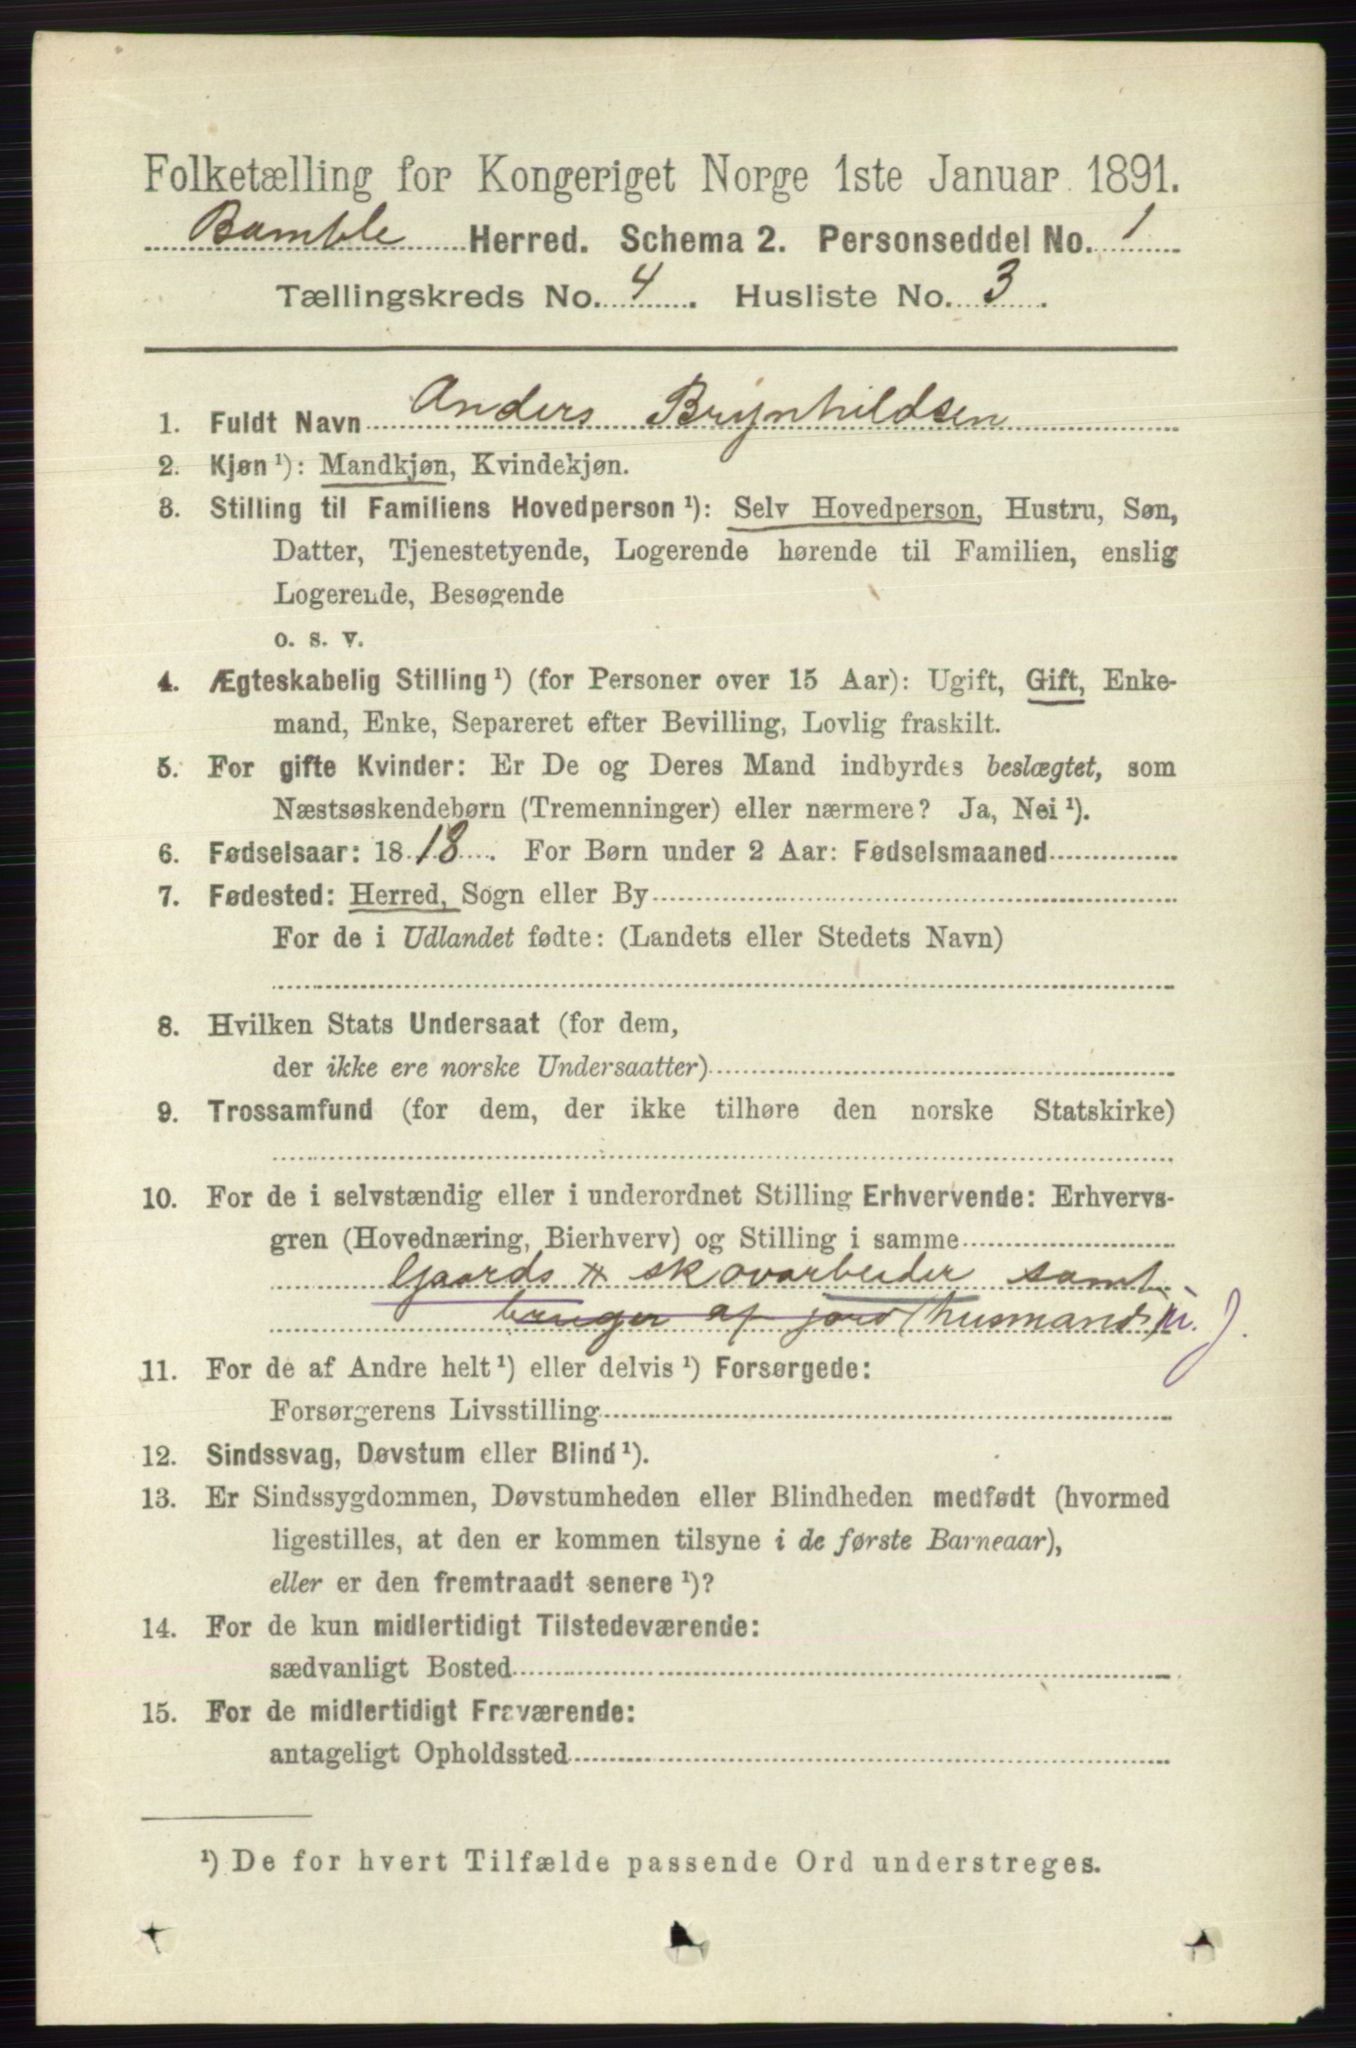 Folketælling for Kongeriget Norge 1ste Januar 1891.
Bamble Herred. Schema 2. Personseddel No. 1
Tællingskreds No. 4. Husliste No. 3.
1. Fuldt Navn Anders Brynhildsen
2. Kjøn ¹): Mandkjøn, Kvindekjøn.
3. Stilling til Familiens Hovedperson ¹): Selv Hovedperson, Hustru, Søn,
Datter, Tjenestetyende, Logerende hørende til Familien, enslig
Logerende, Besøgende
o. s. v.
4. Ægteskabelig Stilling ¹) (for Personer over 15 Aar): Ugift, Gift, Enke-
mand, Enke, Separeret efter Bevilling, Lovlig fraskilt.
5. For gifte Kvinder: Er De og Deres Mand indbyrdes beslægtet, som
Næstsøskendebørn (Tremenninger) eller nærmere? Ja, Nei ¹).
6. Fødselsaar: 1818. For Børn under 2 Aar: Fødselsmaaned
7. Fødested: Herred, Sogn eller By
For de i Udlandet fødte: (Landets eller Stedets Navn)
8. Hvilken Stats Undersaat (for dem,
der ikke ere norske Undersaatter)
9. Trossamfund (for dem, der ikke tilhøre den norske Statskirke)
10. For de i selvstændig eller i underordnet Stilling Erhvervende: Erhvervs-
gren (Hovednæring, Bierhverv) og Stilling i samme
Gaards & skovarbeider samt
bruger af jord (husmand) m. J.
11. For de af Andre helt ¹) eller delvis ¹) Forsørgede:
Forsørgerens Livsstilling
12. Sindssvag, Døvstum eller Blind ¹).
13. Er Sindssygdommen, Døvstumheden eller Blindheden medfødt (hvormed
ligestilles, at den er kommen tilsyne i de første Barneaar),
eller er den fremtraadt senere ¹)?
14. For de kun midlertidigt Tilstedeværende:
sædvanligt Bosted
15. For de midlertidigt Fraværende:
antageligt Opholdssted
¹) De for hvert Tilfælde passende Ord understreges.